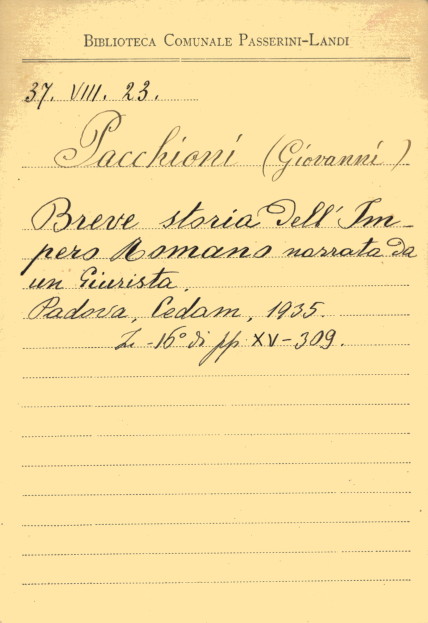 BIBLIOTECA COMUNALE PASSERINI-LANDI
37. VIII. 23.
Pacchioni (Giovanni)
Breve storia dell' Im-
pero Romano narrata da
un Giurista.
Padova, Cedam, 1935.
-16° di pp XV-309.